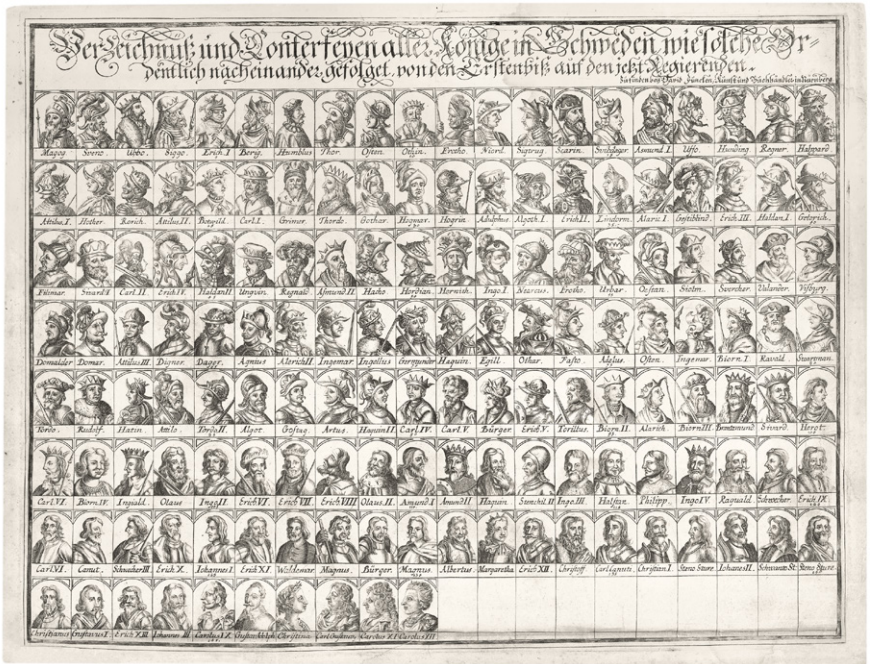 Verzeichnuß und Conterfeyen aller Könige in Schweden wie solche Or-
dentlich nacheinander gefolget von den Ersten biß auf den jetzt Regierenden.
Zufinden bey David Funcken, Kunst und Buchhändler in Nürnberg
Magog. Sveno. Ubbo. Siggo. Erich. I Berig. Humblus Thor. Osten. Othin. Frotho. Niord. Sigtrug. Scarin. Asmund I. Uffo. Hunding. Regner. Halvard
Attilus. I. Hother. Rorich. Attilus II. Botvild. Carl. I. Grimer. Thordo. Gothar. Hogmar. Hogrin Adulphus Algoth. I. Erich II. Lindorm. Alaric I. Gestiblind. Erich. III. Haldan. I. Geterich.
Filimar. Sivard. I Carl. II. Erich IV. Haldan II Ungvin. Regnald. Asmund. II. Hako Hordian. Hornich. Ingo. I. Nearcus. Frotho. Urbar. Ostean. Siolm. Svercher. Valander. Visburg.
Domalder Domar. Attilus III. Digner. Dager. Agnius Alerich II. Ingemar. Ingellus Germunder Haquin. Egill. Othar. Fasto. Adelus. Osten. Ingemar. Biorn. I. Ravald.
Tordo. Rudolf. Hatin. Attilo. Tordo II. Algot. Gostag. Artus. Haquin II Carl. IV. Carl V. Bürger. Erich. V. Torillus. Biorn. II. Alarich. Biorn III. Brantemund Sivard. Herot.
Carl. VI. Biorn. IV. Ingiald. Olaus Ingo. II. Erich. VI. Erich. VII. Erich. VIII Olaus. II. Amund. I Amund II Haquin. Stenchil. II Ingo. III. Halstan. Philipp. Ingo IV. Raguald Schwecher. Erich. IX.
Carl. VI. Canut. Schwacher III. Erich. X. Iohannes I. Erich XI. Woldemar. Magnus. Bürger. Magnus. Albertus. Margaretha. Erich. XII. Christoff Carl Cagnuts. Christian I. Steno Sture Iohanes II. Schwante St. Steno Sture.
Christianus Gustavus I. Erich XIII. Iohannes III Carolus IX. Gustav Adolph. Christina. Carl Gustavus. Carolus XI Carolus XII